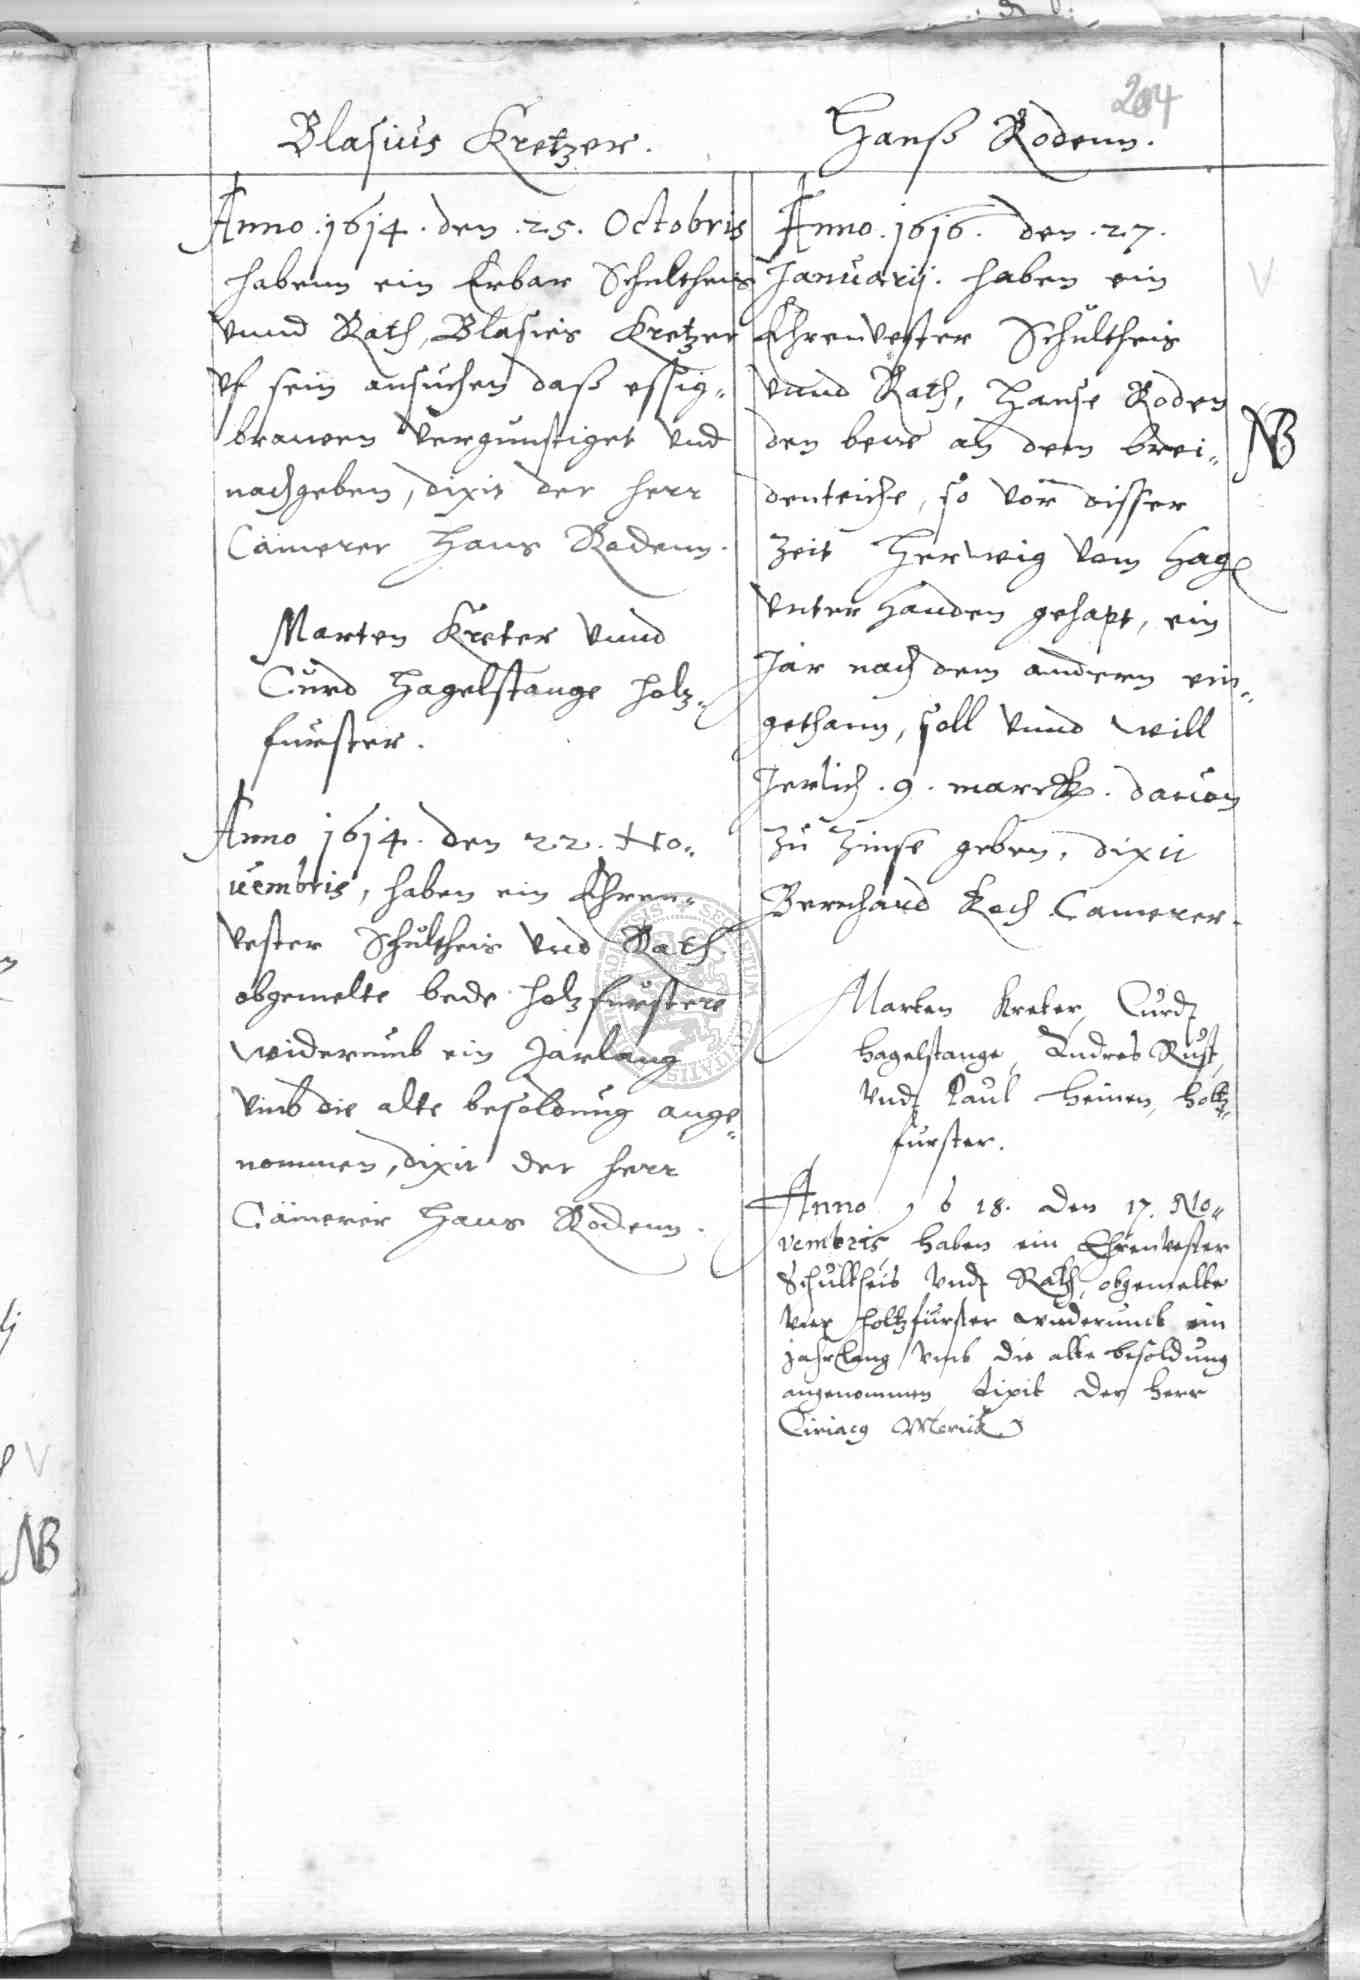 204
Blasius Kretzer.
Anno .1614. den .25. Octobris
habenn ein Erbar Schultheis
vnnd Rath, Blasius Kretzer
vf sein ansuchen daß essig-
brauwen vergunstiget vnd
nachgeben, dixit der herr
Cämerer Hans Rodenn.
Marten Kreter vnnd
Curd Hagelstange holz-
furster.
Anno 1614. den 22. No-
uembris, haben ein Ehren-
vester Schultheis vnd Rath
obgemelte bede holzfurstere
widerumb ein Jarlang
vmb die alte besoldung ange-
nommen, dixit der herr
Cämerer Hans Rodenn.
Hanß Rodenn.
Anno .1616. den .27.
Januarij. haben ein
Ehrenvester Schultheis
vnnd Rath, Hanse Roden
den an dem brei-
denteiche, so vor disser
zeit Herwig vom Hag
vnter handen gehapt, ein
Jar nach dem anderen ein-
gethann, soll vnnd will
Jerlich .9. marck. dauon
zu Zinse geben, dixit
Bernhard Koch Camerer.
NB
Marten Kreter, Curdt
Hagelstange, Andres Rust,
vndt Paul Heinen, holtz-
furster.
Anno 1618. den 17. No-
vembris, haben ein Ehrenvester
Schultheis vndt Rath, obgemelte
vier holtzfurster widerumb ein
jahrlang vmb die alte besoldung
angenommen dixit der herr
Ciriacg
NB